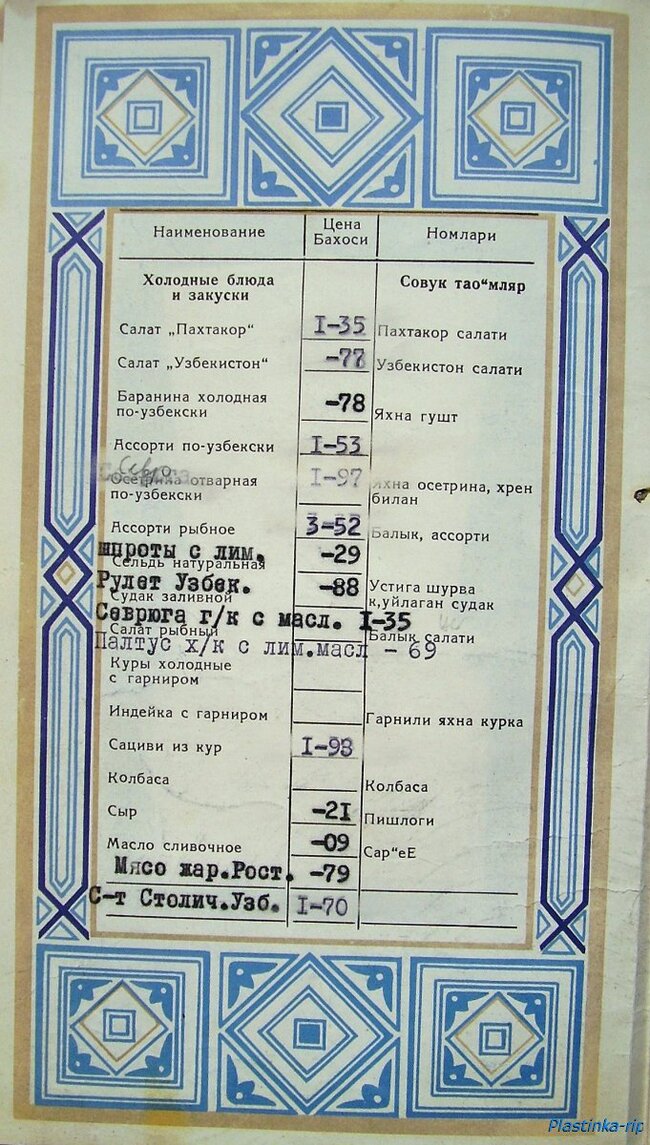 Наименование Цена Бахоси Номлари
Холодные блюда и закуски Совук тао“мляр
Салат „Пахтакор“ I-35 Пахтакор салати
Салат „Узбекистон“ -77 Узбекистон салати
Баранина холодная по-узбекски -78 Яхна гушт
Ассорти по-узбекски I-53
Осетрина отварная по-узбекски I-97 Яхна осетрина, хрен билан
Ассорти рыбное 3-52 Балык, ассорти
шпроты с лим. -29
Сельдь натуральная
Рулет Узбек. -88 Устига шурва к,уйлаган судак
Судак заливной
Севрюга г/к с масл. I-35
Салат рыбный Балык салати
Палтус х/к с лим.масл - 69
Куры холодные с гарниром
Индейка с гарниром Гарнили яхна курка
Сациви из кур I-93
Колбаса Колбаса
Сыр -2I Пишлоги
Масло сливочное -09 Сар“еЕ
Мясо жар.Рост. -79
С-т Столич.Узб. I-70
Plastinka-rip